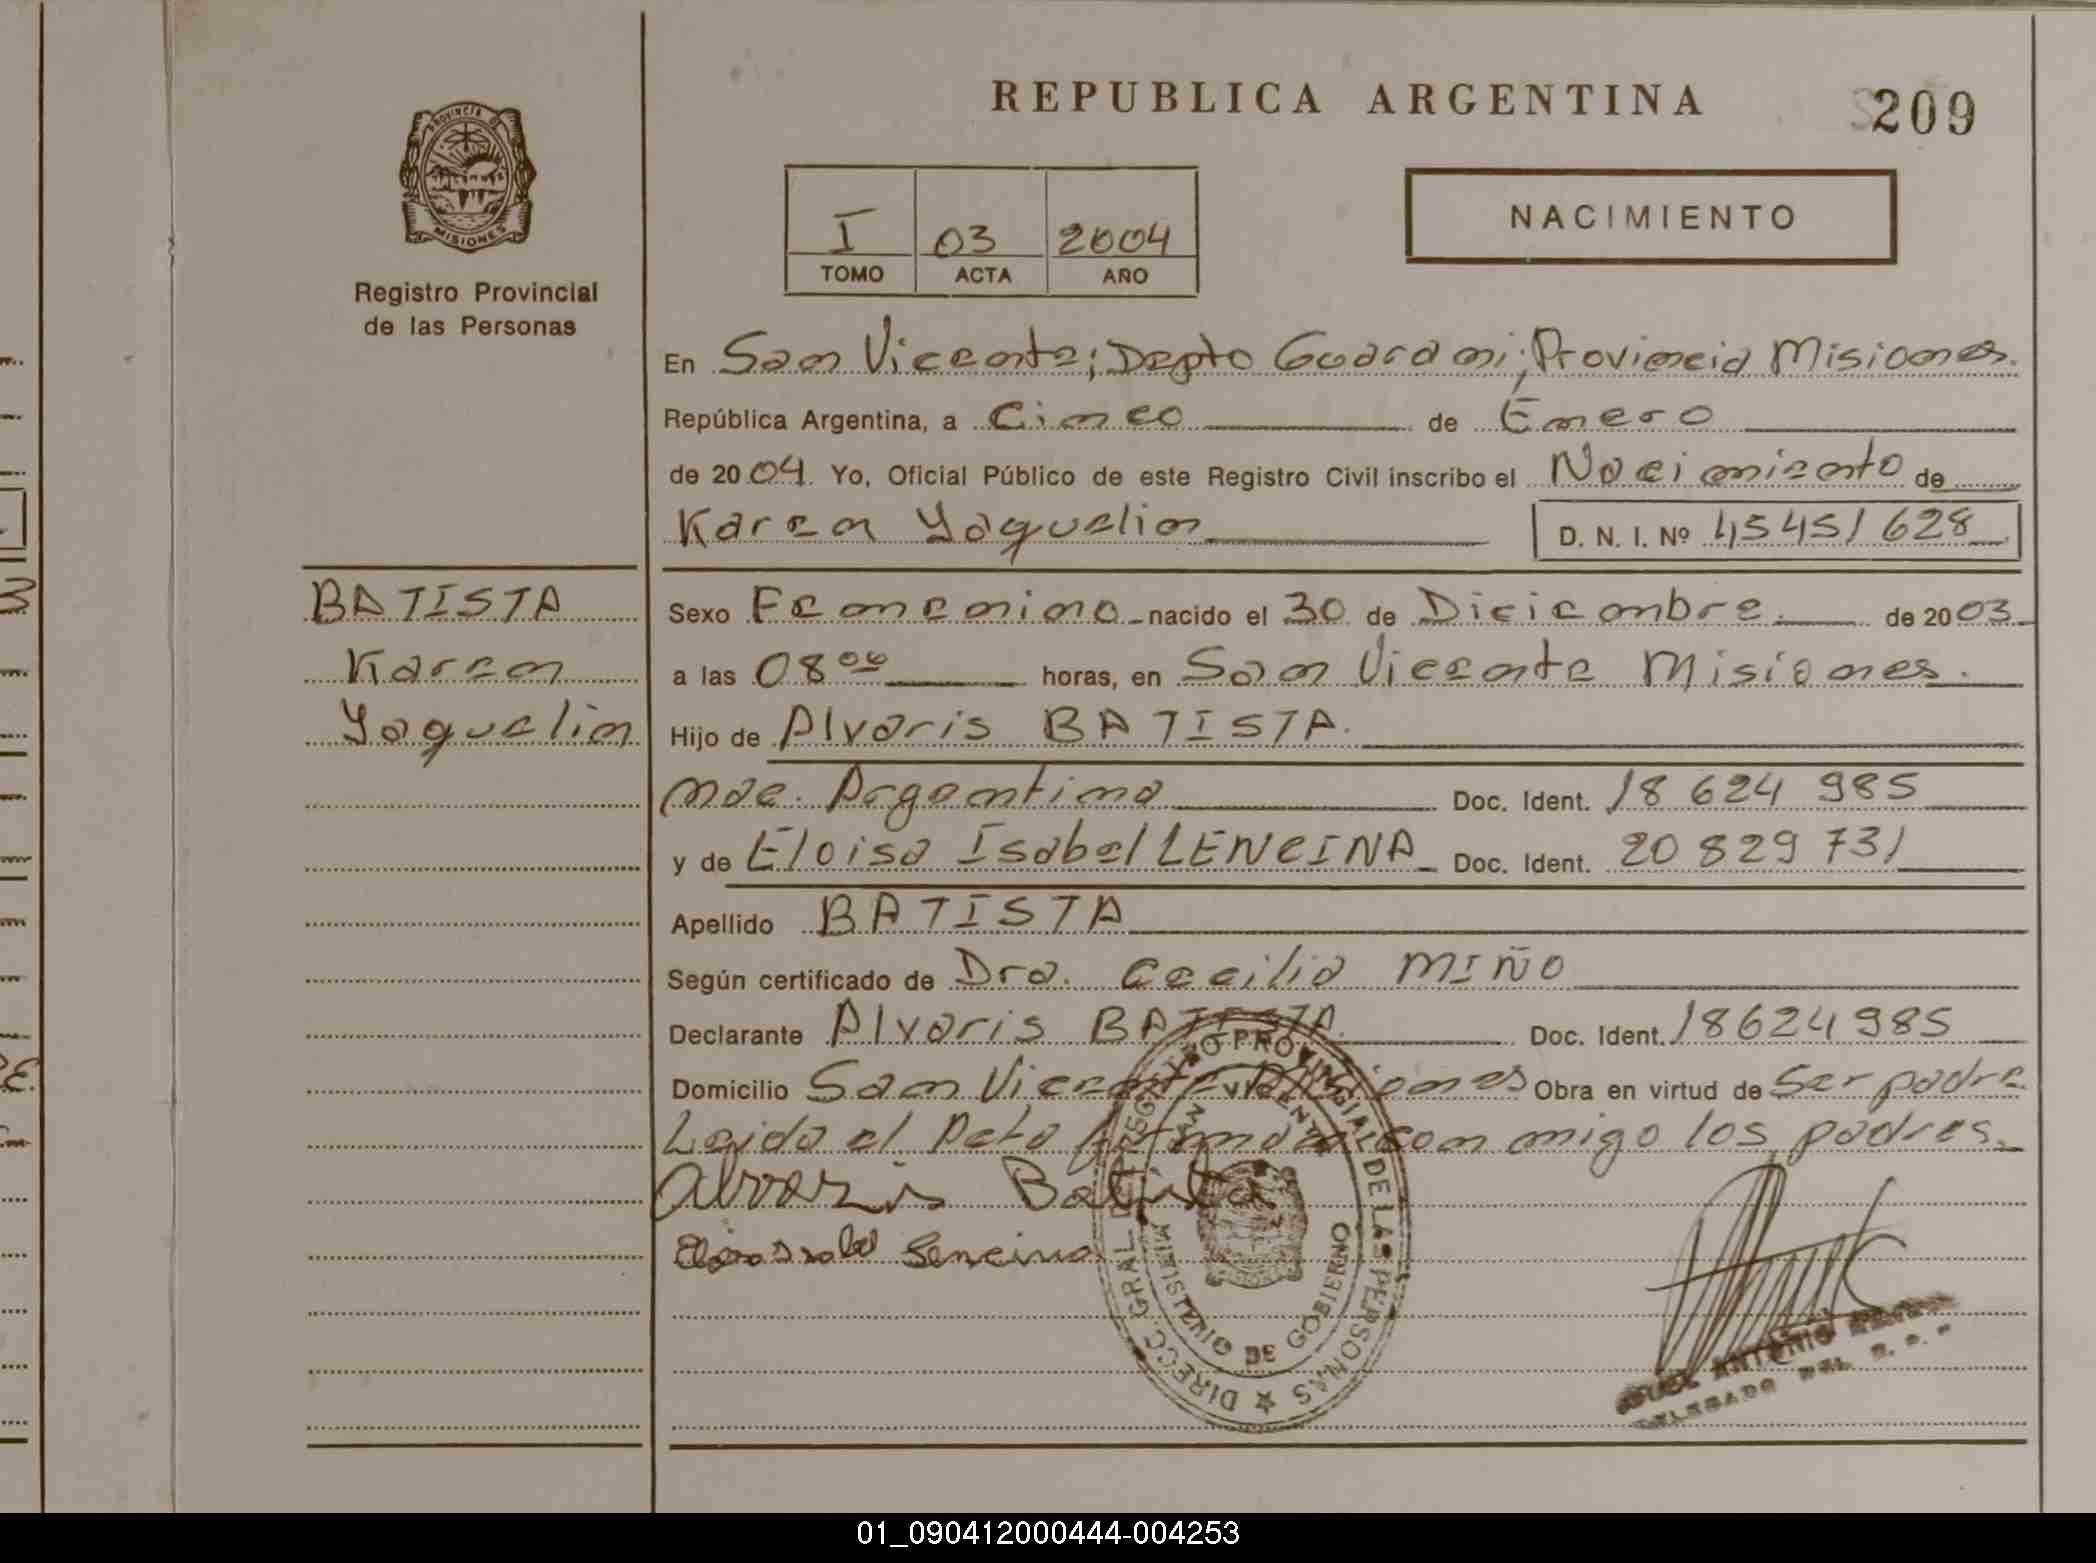 REPUBLICA ARGENTINA
209
PROVINCIA DE
MISIONES
Registro Provincial
de las Personas
I 03 2004
TOMO ACTA AÑO
NACIMIENTO
En San Vicente; Depto Guarani; Provincia Misiones.
República Argentina, a Cinco de Enero
de 2004. Yo, Oficial Público de este Registro Civil inscribo el Nacimiento de
Karen Yaquelin D. N. I. Nº 45451628
BATISTA
Karen
Yaquelin
Sexo Femenino nacido el 30 de Diciembre de 2003
a las 08 00 horas, en San Vicente Misiones.
Hijo de Alvaris BATISTA.
nac. Argentina Doc. Ident. 18 624 985
y de Eloisa Isabel LENCINA Doc. Ident. 20 829 731
Apellido BATISTA
Según certificado de Dra. Cecilia MIÑO
Declarante Alvaris BATISTA Doc. Ident. 18624985
Domicilio San Vicente Misiones Obra en virtud de Ser padre
Leida el Acta firman conmigo los padres.
Alvaris Batista
Isabel Lencina
DIRECC. GRAL. DEL REGISTRO PROVINCIAL DE LAS PERSONAS
SAN VICENTE
MINISTERIO DE GOBIERNO
ANTONIO
DELEGADO DEL R. P. P.
01_090412000444-004253